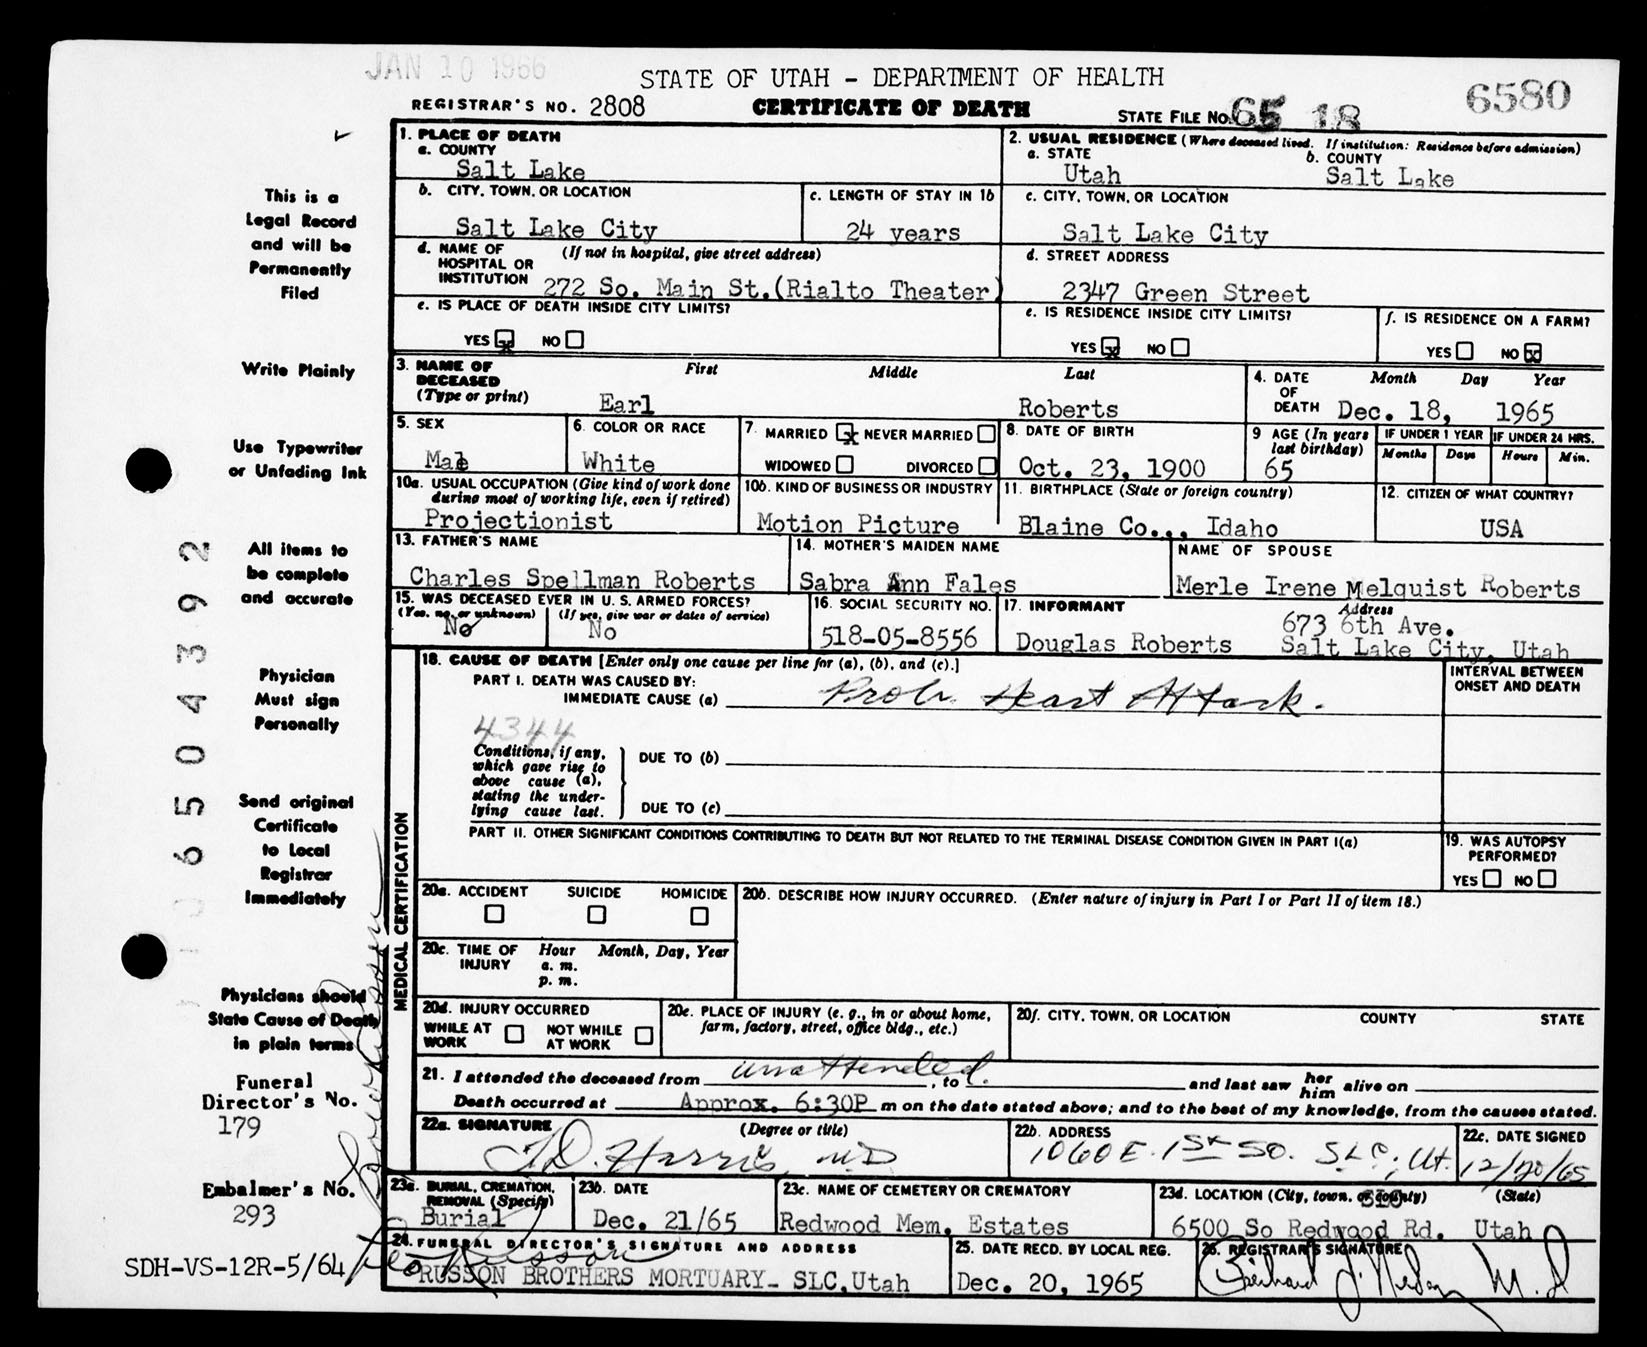 JAN 10 1966
STATE OF UTAH - DEPARTMENT OF HEALTH
6580
REGISTRAR'S NO. 2808
CERTIFICATE OF DEATH
STATE FILE NO. 65 18
This is a
Legal Record
and will be
Permanently
Filed
Write Plainly
Use Typewriter
or Unfading Ink
All items to
be complete
and accurate
Physician
Must sign
Personally
Send original
Certificate
to Local
Registrar
Immediately
Physicians should
State Cause of Death
in plain terms
Funeral
Director's No.
179
Embalmer's No.
293
SDH-VS-12R-5/64
6504392
1. PLACE OF DEATH
a. COUNTY
Salt Lake
2. USUAL RESIDENCE (Where deceased lived. If institution: Residence before admission)
a. STATE
Utah
b. COUNTY
Salt Lake
b. CITY, TOWN, OR LOCATION
Salt Lake City
c. LENGTH OF STAY IN 1b
24 years
c. CITY, TOWN, OR LOCATION
Salt Lake City
d. NAME OF HOSPITAL OR INSTITUTION
(If not in hospital, give street address)
272 So. Main St.(Rialto Theater)
d. STREET ADDRESS
2347 Green Street
e. IS PLACE OF DEATH INSIDE CITY LIMITS?
YES x NO
e. IS RESIDENCE INSIDE CITY LIMITS?
YES x NO
f. IS RESIDENCE ON A FARM?
YES NO x
3. NAME OF DECEASED (Type or print)
First Middle Last
Earl Roberts
4. DATE OF DEATH
Month Day Year
Dec. 18, 1965
5. SEX
Male
6. COLOR OR RACE
White
7. MARRIED x NEVER MARRIED
WIDOWED DIVORCED
8. DATE OF BIRTH
Oct. 23, 1900
9 AGE (In years last birthday)
65
IF UNDER 1 YEAR
Months Days
IF UNDER 24 HRS.
Hours Min.
10a. USUAL OCCUPATION (Give kind of work done during most of working life, even if retired)
Projectionist
10b. KIND OF BUSINESS OR INDUSTRY
Motion Picture
11. BIRTHPLACE (State or foreign country)
Blaine Co.., Idaho
12. CITIZEN OF WHAT COUNTRY?
USA
13. FATHER'S NAME
Charles Spellman Roberts
14. MOTHER'S MAIDEN NAME
Sabra Ann Fales
NAME OF SPOUSE
Merle Irene Melquist Roberts
15. WAS DECEASED EVER IN U. S. ARMED FORCES?
(Yes, no, or unknown) (If yes, give war or dates of service)
No No
16. SOCIAL SECURITY NO.
518-05-8556
17. INFORMANT
Douglas Roberts
Address
673 6th Ave.
Salt Lake City, Utah
MEDICAL CERTIFICATION
18. CAUSE OF DEATH [Enter only one cause per line for (a), (b), and (c).]
PART I. DEATH WAS CAUSED BY:
IMMEDIATE CAUSE (a) Prob. Heart Attack.
INTERVAL BETWEEN ONSET AND DEATH
4344
Conditions, if any,
which gave rise to
above cause (a),
stating the under-
lying cause last.
DUE TO (b)
DUE TO (c)
PART II. OTHER SIGNIFICANT CONDITIONS CONTRIBUTING TO DEATH BUT NOT RELATED TO THE TERMINAL DISEASE CONDITION GIVEN IN PART I(a)
19. WAS AUTOPSY PERFORMED?
YES NO
20a. ACCIDENT SUICIDE HOMICIDE
20b. DESCRIBE HOW INJURY OCCURRED. (Enter nature of injury in Part I or Part II of item 18.)
20c. TIME OF INJURY
Hour Month, Day, Year
a. m.
p. m.
20d. INJURY OCCURRED
WHILE AT WORK NOT WHILE AT WORK
20e. PLACE OF INJURY (e. g., in or about home, farm, factory, street, office bldg., etc.)
20f. CITY, TOWN, OR LOCATION COUNTY STATE
21. I attended the deceased from unattended. , to and last saw her him alive on
Death occurred at Approx. 6:30P m on the date stated above; and to the best of my knowledge, from the causes stated.
22a. SIGNATURE (Degree or title)
Harris M.D
22b. ADDRESS
1060 E. 1st So. S.L.C., Ut.
22c. DATE SIGNED
12/20/65
23a. BURIAL, CREMATION, REMOVAL (Specify)
Burial
23b. DATE
Dec. 21/65
23c. NAME OF CEMETERY OR CREMATORY
Redwood Mem. Estates
23d. LOCATION (City, town, or county) (State)
SLC
6500 So Redwood Rd. Utah
24. FUNERAL DIRECTOR'S SIGNATURE AND ADDRESS
RUSSON BROTHERS MORTUARY- SLC,Utah
25. DATE RECD. BY LOCAL REG.
Dec. 20, 1965
26. REGISTRAR'S SIGNATURE
M.D